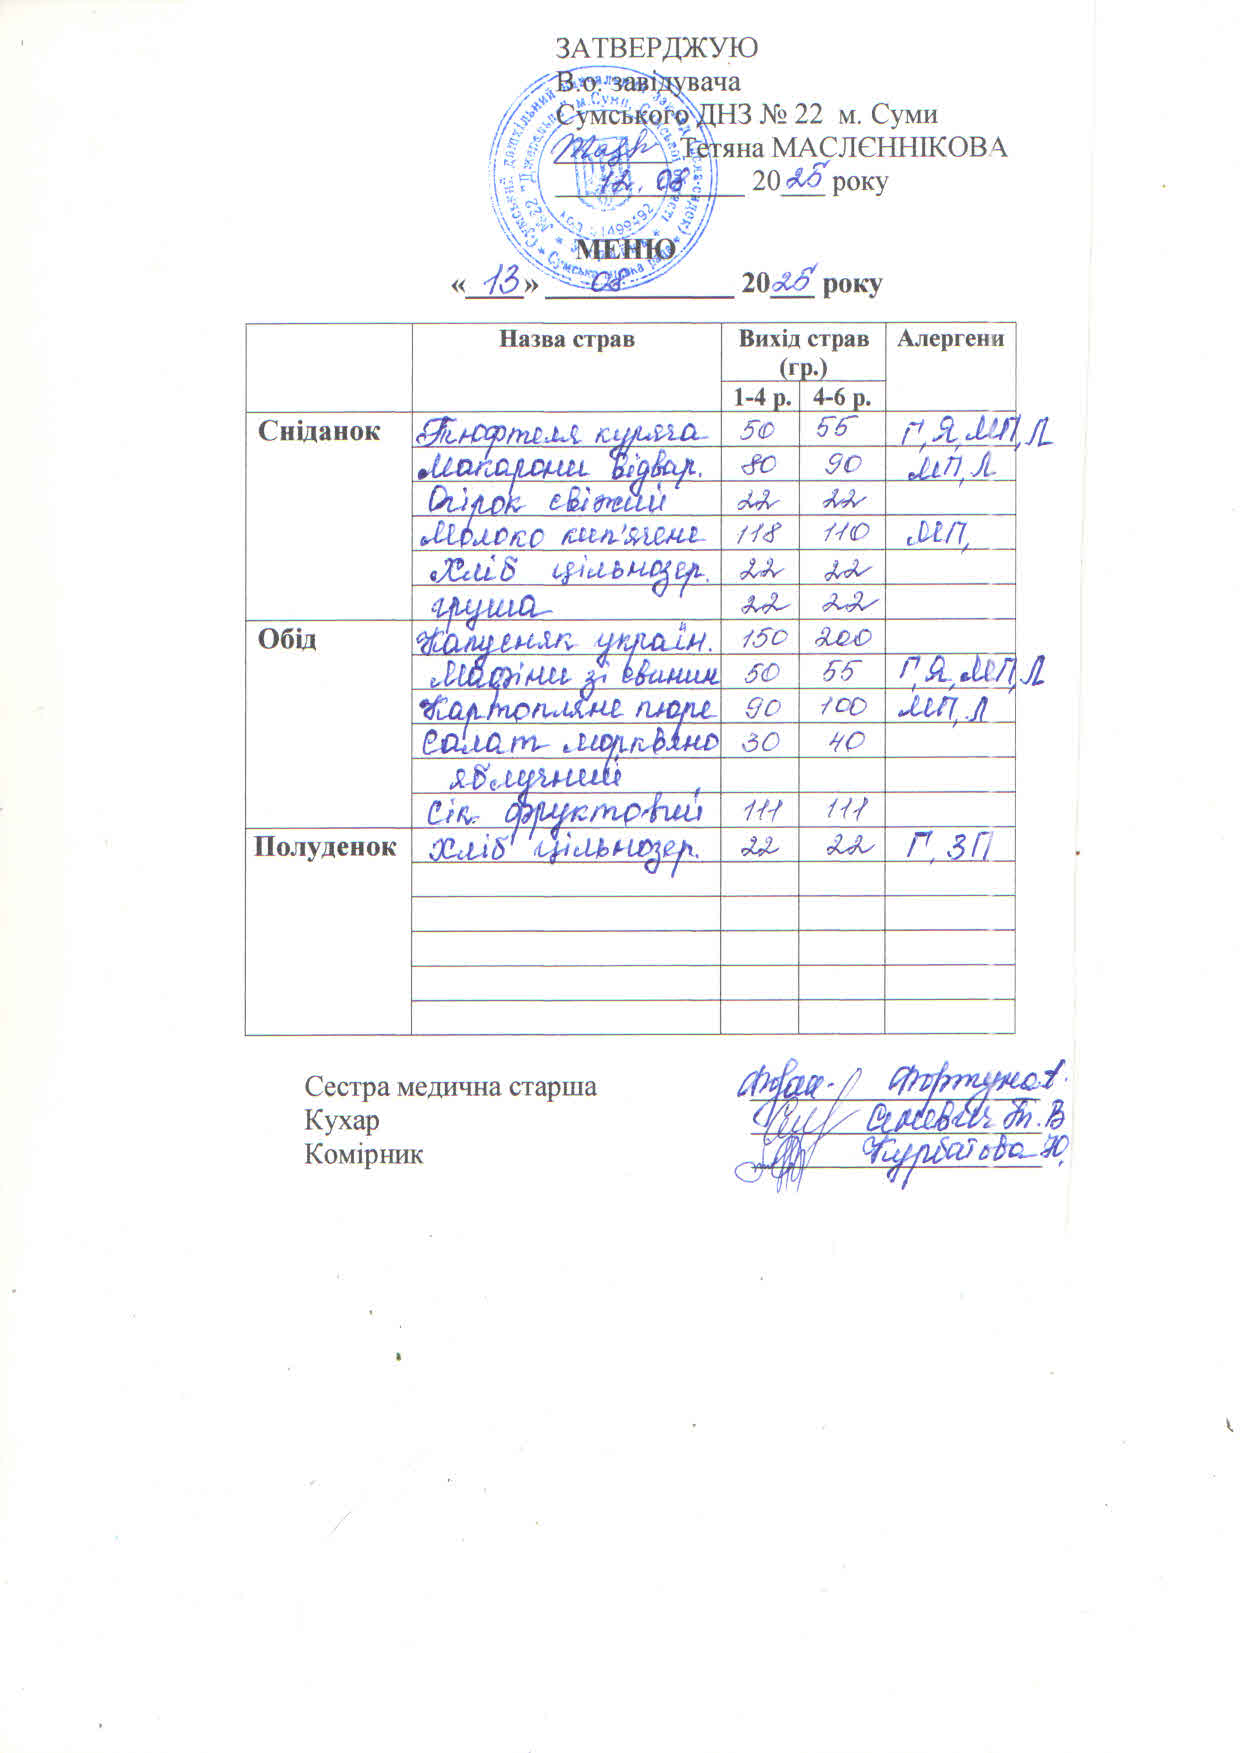 ЗАТВЕРДЖУЮ
В.о. завідувача
Сумського ДНЗ № 22 м. Суми
Тетяна МАСЛЄННІКОВА
12.08 2025 року
МЕНЮ
«13» 08 2025 року
Назва страв Вихід страв (гр.) Алергени
1-4 р. 4-6 р.
Сніданок Тюфтеля куряча 50 55 Г,Я,МП,Л
Макарони відвар. 80 90 МП,Л
Огірок свіжий 22 22
Молоко кип'ячене 118 110 МП,
Хліб цільнозер. 22 22
груша 22 22
Обід Капусняк україн. 150 200
Мафіни зі свинин 50 55 Г,Я,МП,Л
Картопляне пюре 90 100 МП,Л
Салат морквяно 30 40
яблучний
Сік фруктовий 111 111
Полуденок Хліб цільнозер. 22 22 Г, ЗП
Сестра медична старша
Кухар Т.В
Комірник Курбатова Ю.